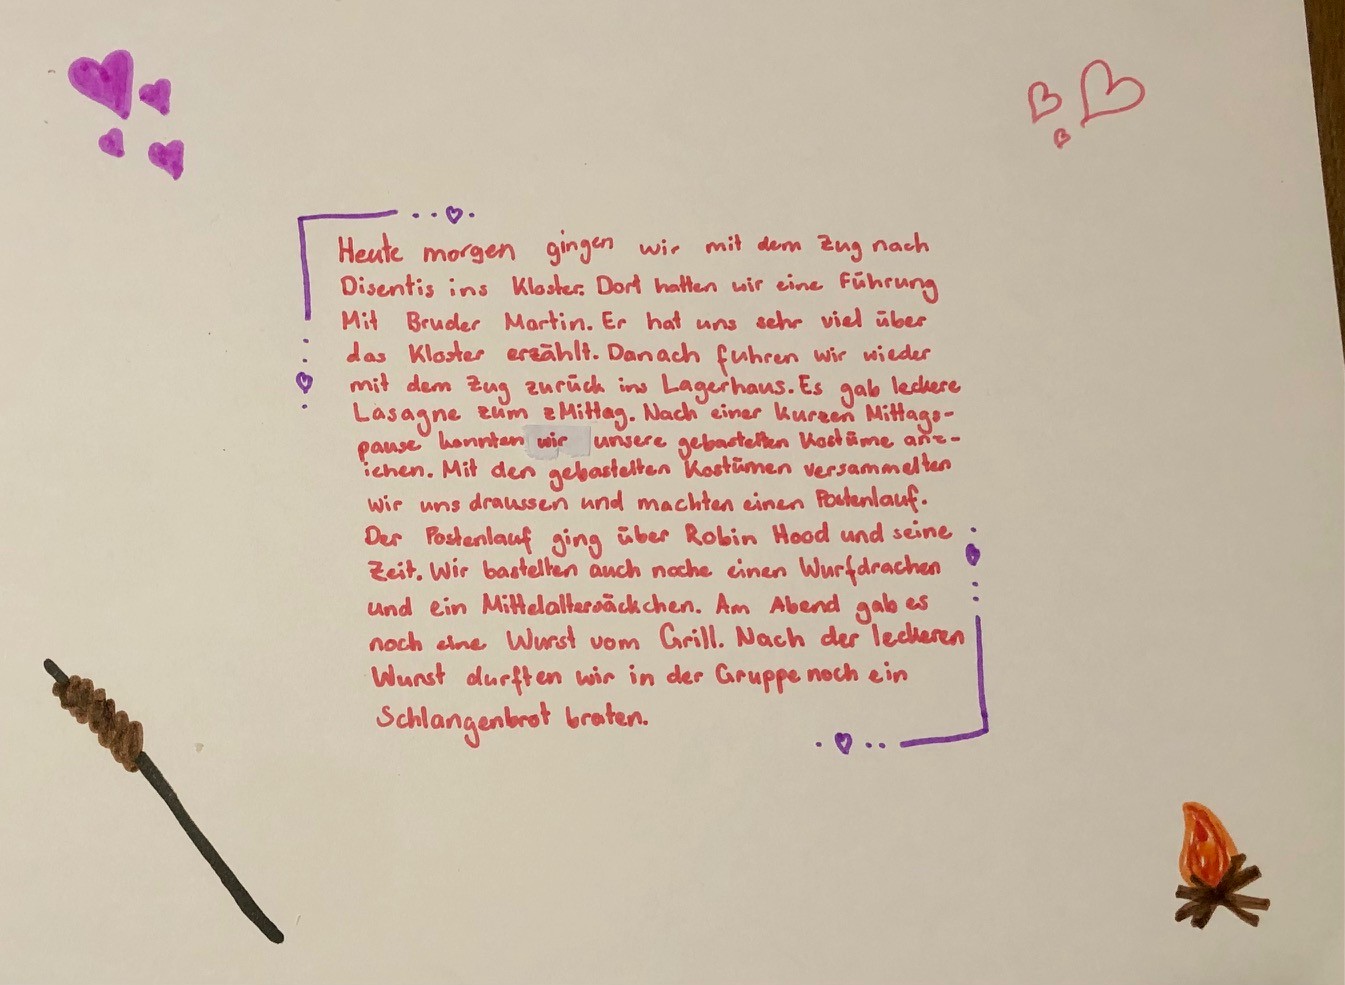 Heute morgen gingen wir mit dem Zug nach
Disentis ins Kloster. Dort hatten wir eine Führung
Mit Bruder Martin. Er hat uns sehr viel über
das Kloster erzählt. Danach fuhren wir wieder
mit dem Zug zurück ins Lagerhaus. Es gab leckere
Lasagne zum zMittag. Nach einer kurzen Mittags-
pause konnten wir unsere gebastelten Kostüme anz-
iehen. Mit den gebastelten Kostümen versammelten
wir uns draussen und machten einen Postenlauf.
Der Postenlauf ging über Robin Hood und seine
Zeit. Wir bastelten auch noche einen Wurfdrachen
und ein Mittelaltersäckchen. Am Abend gab es
noch eine Wurst vom Grill. Nach der leckeren
Wurst durften wir in der Gruppe noch ein
Schlangenbrot braten.